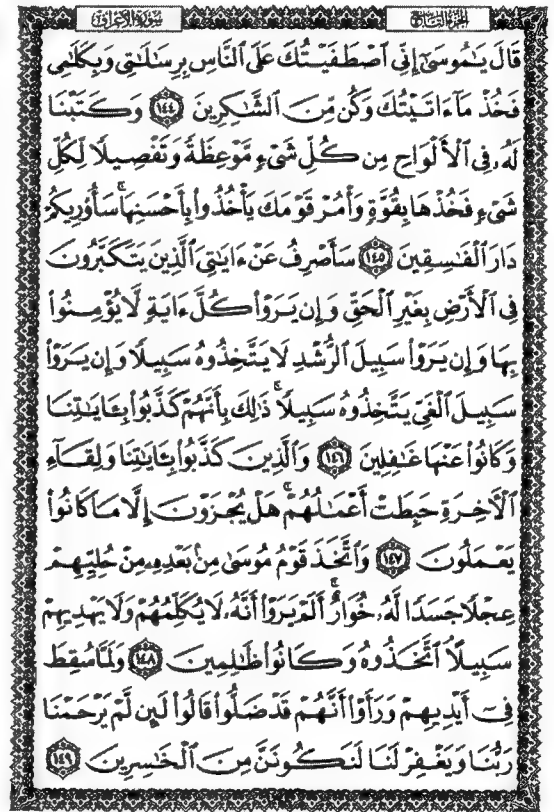 الجزء التاسع
سورة الأعراف
قَالَ يَٰمُوسَىٰٓ إِنِّى ٱصْطَفَيْتُكَ عَلَى ٱلنَّاسِ بِرِسَٰلَٰتِى وَبِكَلَٰمِى
فَخُذْ مَآ ءَاتَيْتُكَ وَكُن مِّنَ ٱلشَّٰكِرِينَ ١٤٤ وَكَتَبْنَا
لَهُۥ فِى ٱلْأَلْوَاحِ مِن كُلِّ شَىْءٍ مَّوْعِظَةً وَتَفْصِيلًا لِّكُلِّ
شَىْءٍ فَخُذْهَا بِقُوَّةٍ وَأْمُرْ قَوْمَكَ يَأْخُذُوا۟ بِأَحْسَنِهَا ۚ سَأُو۟رِيكُمْ
دَارَ ٱلْفَٰسِقِينَ ١٤٥ سَأَصْرِفُ عَنْ ءَايَٰتِىَ ٱلَّذِينَ يَتَكَبَّرُونَ
فِى ٱلْأَرْضِ بِغَيْرِ ٱلْحَقِّ وَإِن يَرَوْا۟ كُلَّ ءَايَةٍ لَّا يُؤْمِنُوا۟
بِهَا وَإِن يَرَوْا۟ سَبِيلَ ٱلرُّشْدِ لَا يَتَّخِذُوهُ سَبِيلًا وَإِن يَرَوْا۟
سَبِيلَ ٱلْغَىِّ يَتَّخِذُوهُ سَبِيلًا ۚ ذَٰلِكَ بِأَنَّهُمْ كَذَّبُوا۟ بِـَٔايَٰتِنَا
وَكَانُوا۟ عَنْهَا غَٰفِلِينَ ١٤٦ وَٱلَّذِينَ كَذَّبُوا۟ بِـَٔايَٰتِنَا وَلِقَآءِ
ٱلْءَاخِرَةِ حَبِطَتْ أَعْمَٰلُهُمْ ۚ هَلْ يُجْزَوْنَ إِلَّا مَا كَانُوا۟
يَعْمَلُونَ ١٤٧ وَٱتَّخَذَ قَوْمُ مُوسَىٰ مِنۢ بَعْدِهِۦ مِنْ حُلِيِّهِمْ
عِجْلًا جَسَدًا لَّهُۥ خُوَارٌ ۚ أَلَمْ يَرَوْا۟ أَنَّهُۥ لَا يُكَلِّمُهُمْ وَلَا يَهْدِيهِمْ
سَبِيلًا ۘ ٱتَّخَذُوهُ وَكَانُوا۟ ظَٰلِمِينَ ١٤٨ وَلَمَّا سُقِطَ
فِىٓ أَيْدِيهِمْ وَرَأَوْا۟ أَنَّهُمْ قَدْ ضَلُّوا۟ قَالُوا۟ لَئِن لَّمْ يَرْحَمْنَا
رَبُّنَا وَيَغْفِرْ لَنَا لَنَكُونَنَّ مِنَ ٱلْخَٰسِرِينَ ١٤٩